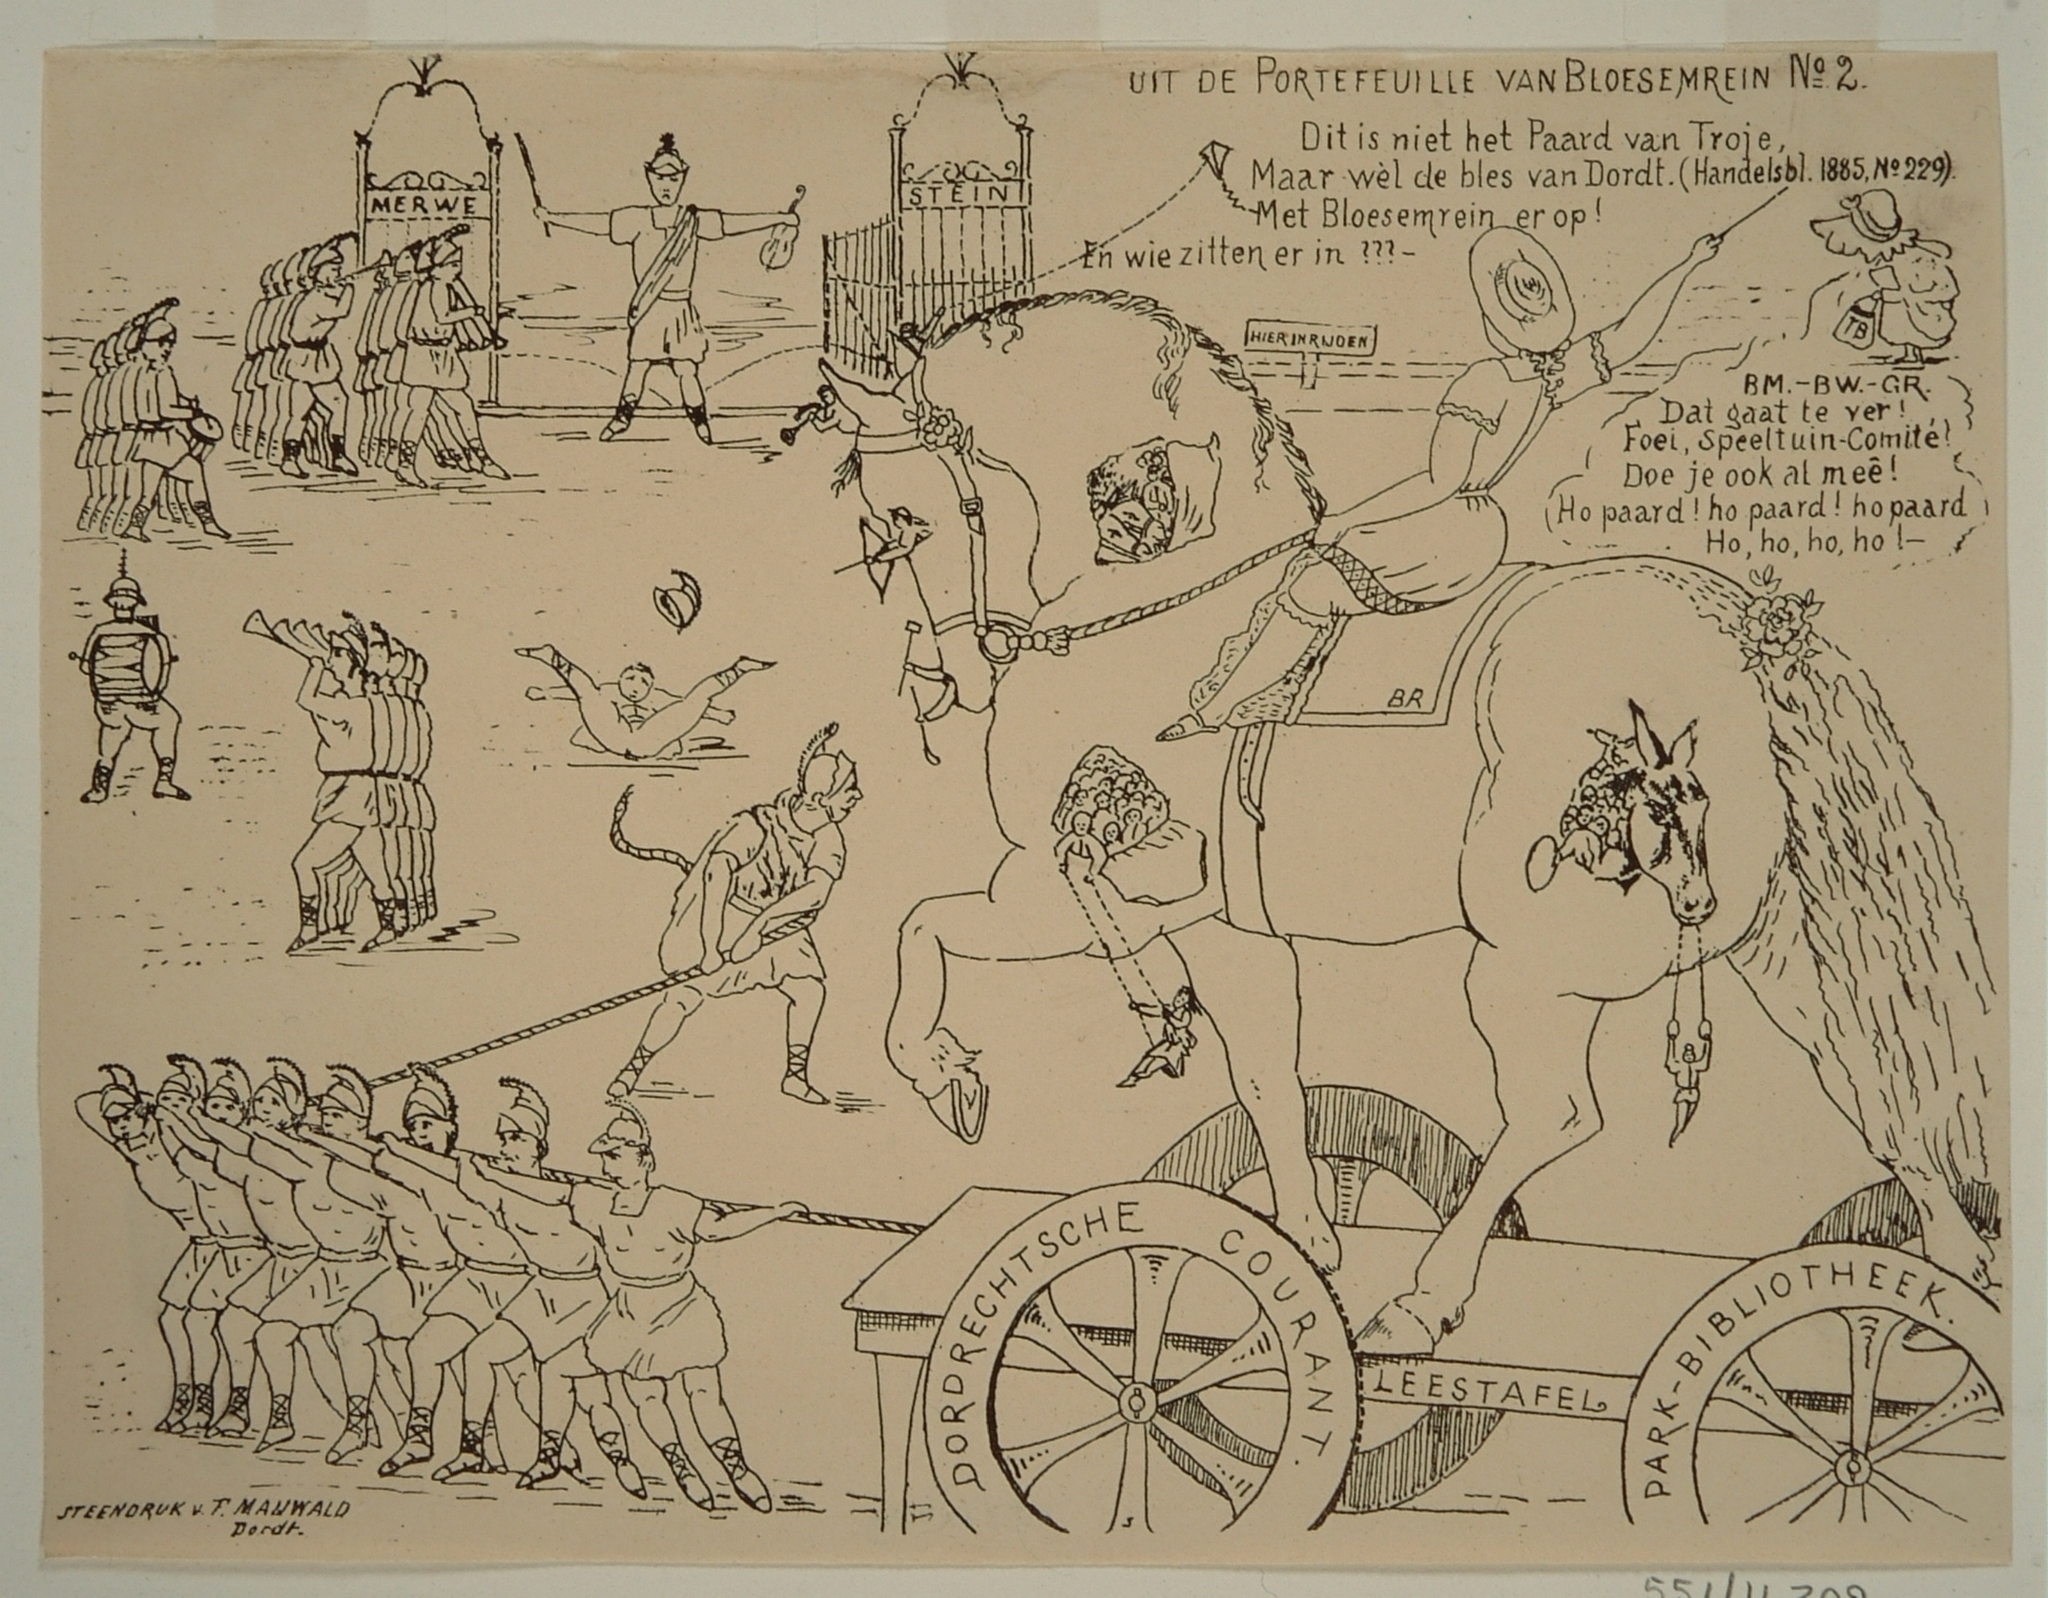 UIT DE PORTEFEUILLE VAN BLOESEMREIN No 2.
Dit is niet het Paard van Troje,
Maar wèl de bles van Dordt. (Handelsbl. 1885, No 229).
Met Bloesemrein er op!
En wie zitten er in ???-
MERWE
STEIN
HIER INRIJDEN
TB
BM.-BW.-GR.
Dat gaat te ver!
Foei, Speeltuin-Comité!
Doe je ook al meê!
Ho paard! ho paard! ho paard
Ho, ho, ho, ho!-
BR
DORDRECHTSCHE COURANT.
LEESTAFEL
PARK-BIBLIOTHEEK.
STEENDRUK v. F. MAUWALD
Dordt.